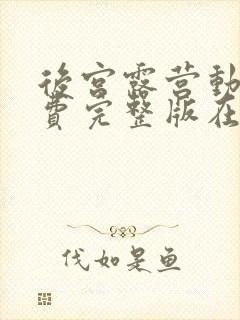 後宫露营動
費完整版在
代如是鱼